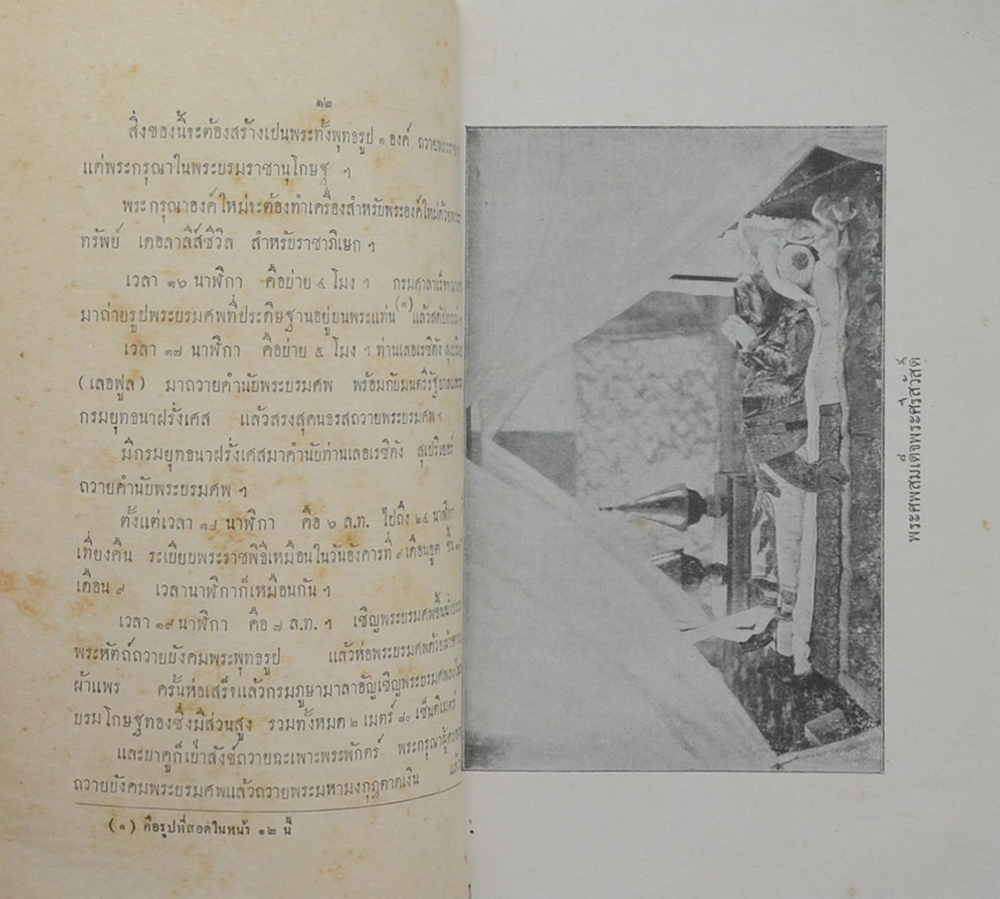 ๑๒
สิ่งของนี้จะต้องสร้างเปนพระทั้งพุทธรูป ๑ องค์ ถวายพระราช
แด่พระกรุณาในพระบรมราชานุโกษฐ ฯ
พระกรุณาองค์ใหม่จะต้องทำเครื่องสำหรับพระองค์ใหม่ด้วยพระ
ทรัพย์ เดอลาลีส์ซีวิล สำหรับราชาภิเษก ฯ
เวลา ๑๖ นาฬิกา คือบ่าย ๔ โมง ฯ
มาถ่ายรูปพระบรมศพที่ประดิษฐานอยู่บนพระแท่น (๑) แล้วสดัปกรณ์ ฯ
เวลา ๑๗ นาฬิกา คือบ่าย ๕ โมง ฯ ท่านเลอเรซิดัง
(เลอฟูล) มาถวายคำนับพระบรมศพ พร้อมกับมนตรีรัฐบาล
กรมยุทธนาฝรั่งเศส แล้วสรงสุคนธรสถวายพระบรมศพ ฯ
มีกรมยุทธนาฝรั่งเศสมาคำนับท่านเลอเรซิดัง สุเปริเออร์
ถวายคำนับพระบรมศพ ฯ
ตั้งแต่เวลา ๑๘ นาฬิกา คือ ๖ ล.ท. ไปถึง ๒๔ นาฬิกา
เที่ยงคืน ระเบียบพระราชพิธีเหมือนในวันอังคารที่ ๙ เดือนอูต
เดือน ๙ เวลานาฬิกาก็เหมือนกัน ฯ
เวลา ๑๙ นาฬิกา คือ ๗ ล.ท. ฯ เชิญพระบรมศพขึ้น
พระหัตถ์ถวายบังคมพระพุทธรูป แล้วห่อพระบรมศพด้วย
ผ้าแพร ครั้นห่อเสร็จแล้วกรมภูษามาลาอัญเชิญพระบรมศพลงใน
บรมโกษฐทองซึ่งมีส่วนสูง รวมทั้งหมด ๒ เมตร์ ๘๐ เซ็นติเมตร์
และบาคูก็เป่าสังข์ถวายฉะเพาะพระพักตร์ พระกรุณาผู้
ถวายบังคมพระบรมศพแล้วถวายพระมหามงกุฎตาดเงิน
(๑) คือรูปที่สอดในหน้า ๑๒ นี้
พระศพสมเด็จพระศรีสวัสดิ์